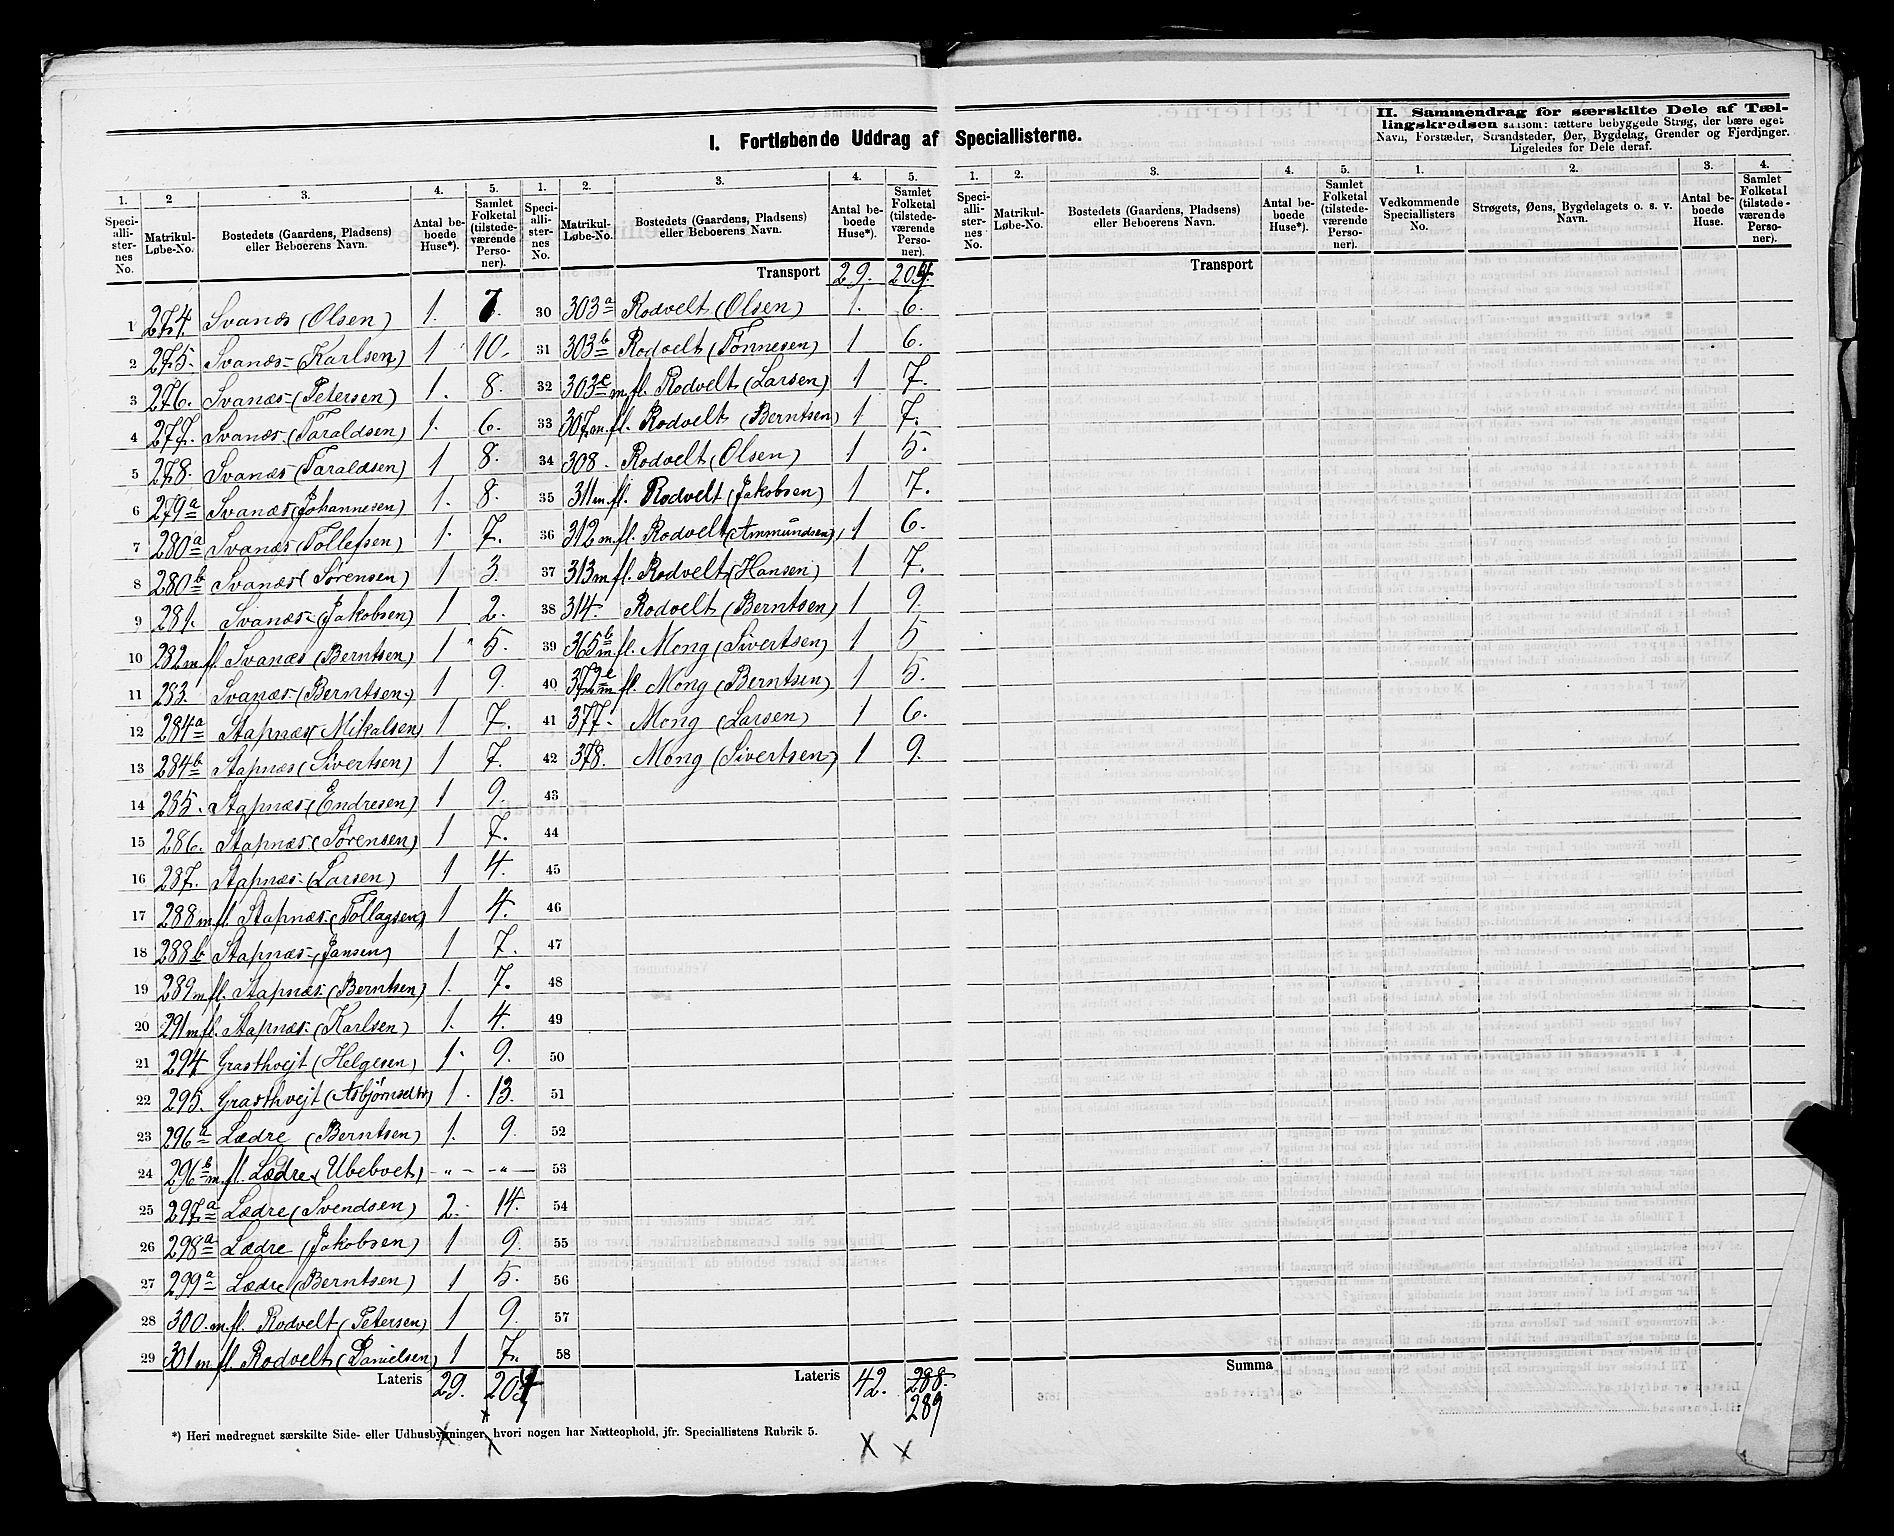 I. Fortløbende Uddrag af Speciallisterne.
II. Sammendrag for særskilte Dele af Tæl-
lingskredsen saasom: tættere bebyggede Strøg, der bære eget
Navn, Forstæder, Strandsteder, Øer, Bygdelag, Grender og Fjerdjnger.
Ligeledes for Dele deraf.
1. 2 3. 4. 5. 1. 2. 3. 4. 5. 1. 2. 3. 4. 5. 1. 2. 3. 4.
Speci-alli-ster-nes No. Matrikul-Løbe-No. Bostedets (Gaardens, Pladsens) eller Beboerens Navn. Antal be-boede Huse*). Samlet Folketal (tilstede-værende Perso-ner).
Speci-alli-ster-nes No. Matrikul-Løbe-No. Bostedets (Gaardens, Pladsens) eller Beboerens Navn. Antal be-boede Huse*). Samlet Folketal (tilstede-værende Perso-ner).
Speci-alli-ster-nes No. Matrikul-Løbe-No. Bostedets (Gaardens, Pladsens) eller Beboerens Navn. Antal be-boede Huse*). Samlet Folketal (tilstede-værende Perso-ner).
Vedkommende Speciallisters No. Strøgets, Øens, Bygdelagets o. s. v. Navn. Antal be-boede Huse. Samlet Folketal (tilstede-værende Perso-ner).
1 274. Svanæs (Olsen) 1. 7.
2 275. Svanæs- (Karlsen) 1 10.
3 276. Svanæs- (Petersen) 1. 8.
4 277. Svanæs- (Taraldsen) 1. 6.
5 278. Svanæs- (Taraldsen) 1 8.
6 279a Svanæs (Johannesen) 1. 8.
7 280a Svanæs (Tollefsen) 1. 7.
8 280b Svanæs (Sørensen) 1 3.
9 281. Svanæs- (Jakobsen) 1 2.
10 282 m fl. Svanæs (Berntsen) 1 5.
11 283. Svanæs- (Berntsen) 1 9.
12 284a Stapnæs (Mikalsen) 1 7.
13 284b Stapnæs (Sivertsen) 1 7.
14 285. Stapnæs (Endresen) 1 9.
15 286. Stapnæs (Sørensen) 1 7.
16 287. Stapnæs- (Larsen) 1 4.
17 288 m. fl. Stapnæs- (Tollagsen) 1 4.
18 288b Stapnæs- (Jansen) 1 7.
19 289 m fl. Stapnæs- (Berntsen) 1. 7.
20 291 m. fl. Stapnæs- (Karlsen) 1. 4.
21 294 Grasthvejt (Helgesen) 1. 9.
22 295. Grasthvejt 1. 13.
23 296a Lædre (Berntsen) 1. 9.
24 296b m. fl. Lædre (Ubeboet) - " - - " -
25 297a Lædre (Svendsen) 2. 14.
26 298a Lædre (Jakobsen) 1 9.
27 299a Lædre (Berntsen) 1 5.
28 300. m. fl. Rodvelt (Petersen) 1 9.
29 301 m fl. Rodvelt (Danielsen) 1 7.
Lateris 29. 204
Transport 29. 204.
30 303a Rodvelt (Olsen) 1. 6.
31 303b Rodvelt (Tønnesen) 1 6.
32 303c m. fl. Rodvelt (Larsen) 1 7.
33 307 m. fl. Rodvelt (Berntsen) 1 7.
34 308. Rodvelt (Olsen) 1 5.
35 311 m. fl. Rodvelt (Jakobsen) 1 7.
36 312 m. fl. Rodvelt (Ammundsen) 1 6.
37 313 m fl. Rodvelt (Hansen) 1 7.
38 314. Rodvelt (Berntsen) 1 9.
39 365b m. fl. Mong (Sivertsen) 1 5
40 372e m. fl. Mong (Berntsen) 1 5.
41 377. Mong (Larsen) 1 6.
42 378. Mong (Sivertsen) 1 9.
43
44
45
46
47
48
49
50
51
52
53
54
55
56
57
58
Lateris 42. 288.
289
Transport
Summa
*) Heri medregnet særskilte Side- eller Udhusbygninger, hvori nogen har Natteophold, jfr. Speciallistens Rubrik 5.